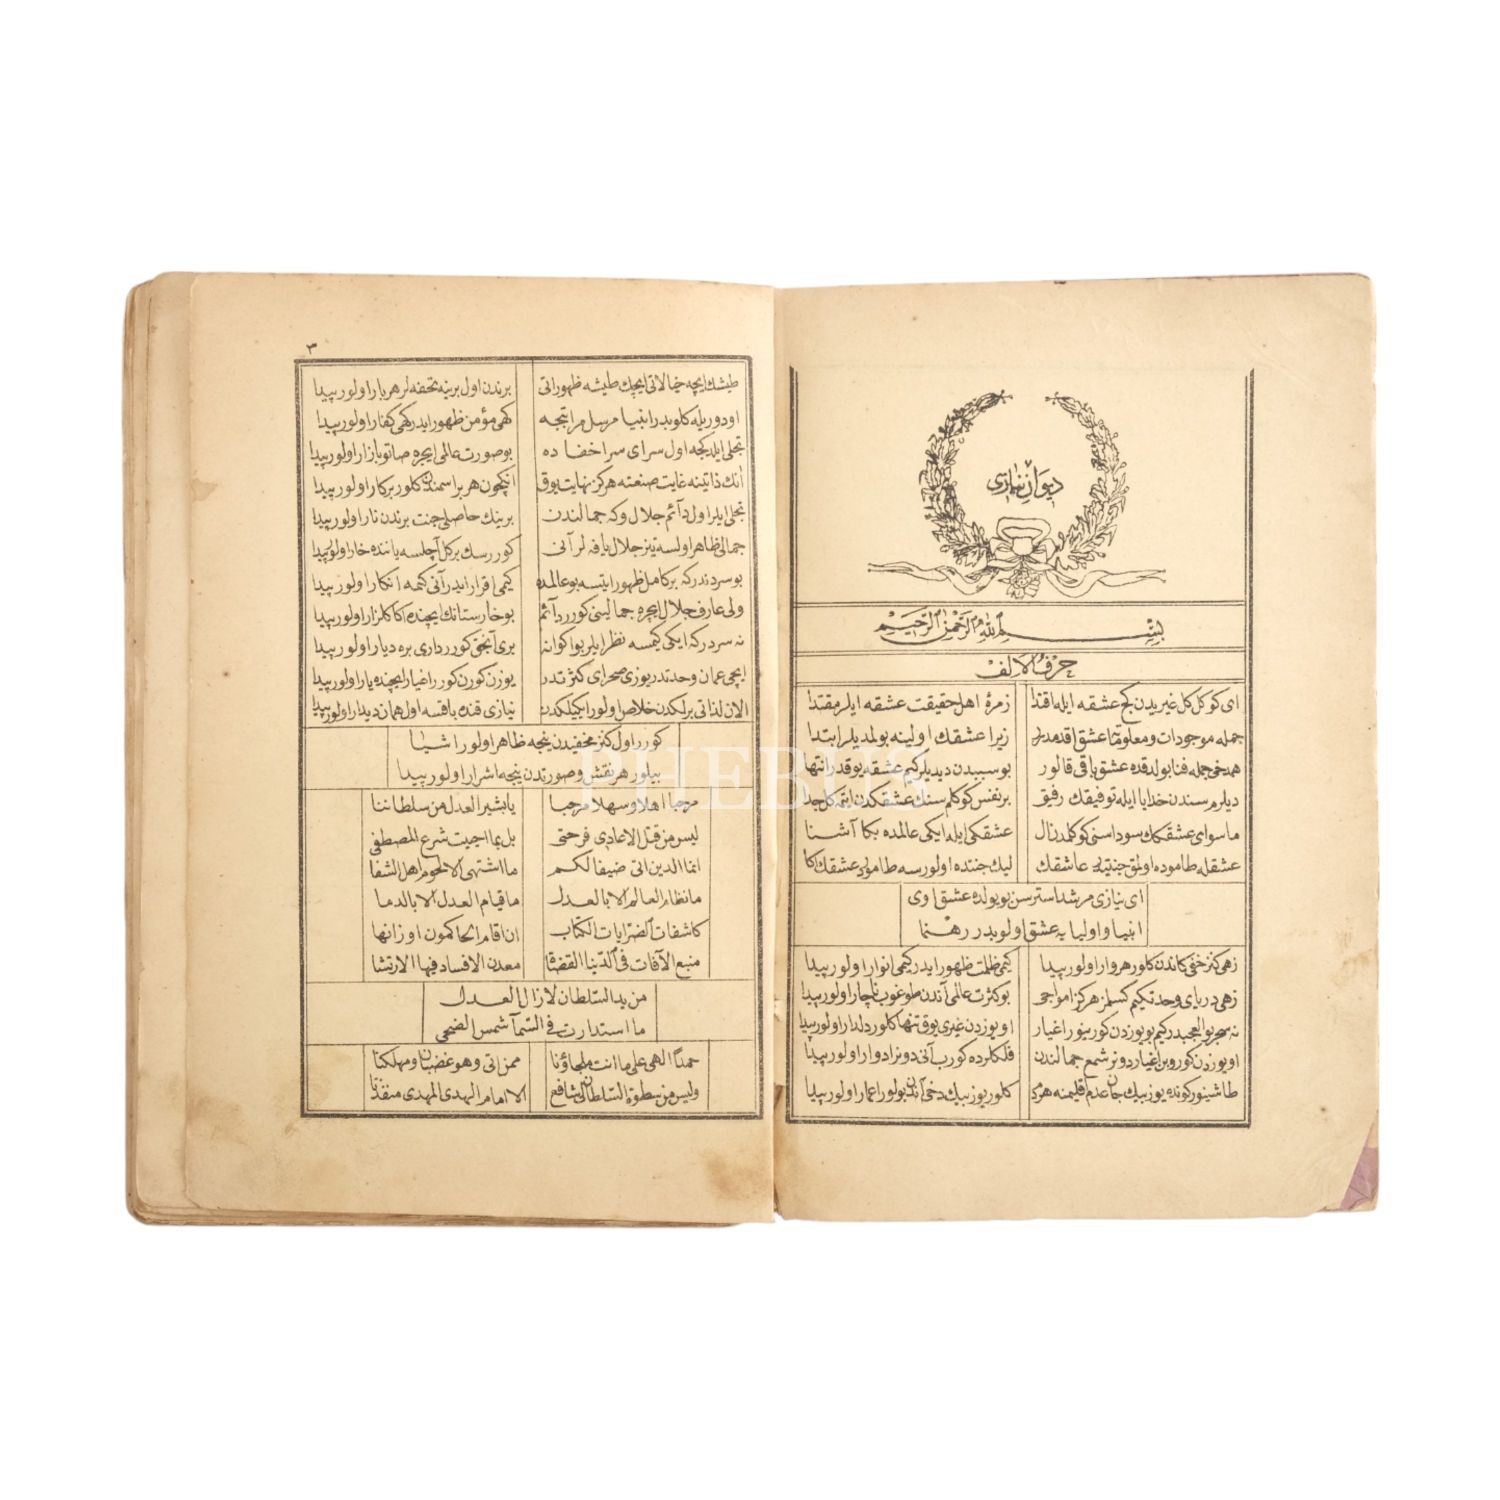 ديوان نيازى
بسم الله الرحمن الرحيم
حرف الالف
اى كوكل كل غيريدن كچ عشقه ايله اقتدا زمرهٔ اهل حقيقت عشقه ايلر مقتدا
جمله موجودات و معلوماته عشق اقدمدر زيرا عشقك اولينه بولمديلر ابتدا
همدخى جمله فنا بولدقده عشق باقى قالور بوسببدن ديديلر كيم عشقه يوقدر انتها
ديلرم سندن خدايا ايله توفيقك رفيق برنفس كوكلم سنك عشقكدن ايتمه كل جدا
ماسواى عشقكك سوداسنى كوكلمدن ال عشقكى ايله ايكى عالمده بكا آشنا
عشقله طاموده اولمق جنتيدر عاشقك ليك جنتده اولورسه طامودر عشقك اكا
اى نيازى مرشد استرسن بو يولده عشق اوى
انبيا و اوليايه عشق اولوبدر رهنما
زهى كنز خفى كاندن كلور هر وار اولور پيدا كيمى ظلمت ظهور ايدر كيمى انوار اولور پيدا
زهى درياى وحدتكيم كسلمز هركز امواجى بو كثرت عالمى آندن طوغوب ناچار اولور پيدا
نه سحر بو العجبدر كيم بو يوزدن كورينور اغيار او يوزدن غيرى يوق تنها كلور دلدار اولور پيدا
او يوزدن كوروبن اغيار دونر شمع جمالندن فلكلرده كورب آنى دونر ادوار اولور پيدا
طاشينور كونده يوز بيك جان عدم قليمنه هر كلور يوز بيك دخى آندن بولور اعمار اولور پيدا
٣
طيشك ايچه خيالاتى ايچك طيشه ظهوراتى برندن اول برينه تحفه لر هر بار اولور پيدا
او دور يله كلوبدر انبيا مرسل مراتبجه كهى مؤمن ظهور ايدر كهى كفار اولور پيدا
تجلى ايلدكجه اول سراى سر اخفاده بو صورت عالمى ايچره صاتو بازار اولور پيدا
انك ذاتينه غايت صنعته هركز نهايت يوق انكچون هر بر اسمندن كلور بر كار اولور پيدا
تجلى ايلر اول دآئم جلال و كه جمالندن برينك حاصلى جنت برندن نار اولور پيدا
جمالى ظاهر اولسه تيز جلال ياقه لر آنى كوررسك بركل آچلسه ياننده خار اولور پيدا
بو سردندر كه بر كامل ظهور ايتسه بو عالمده كيمى اقرار ايدر آنى كيمه انكار اولور پيدا
ولى عارف جلال ايچره جمالينى كورر دآئم بو خارستانك ايچنده اكا كلزار اولور پيدا
نه سردر كه ايكى كيمسه نظر ايلر بو اكوانه برى آنجق كورر دارى بره ديار اولور پيدا
ايچى عمان وحدتدر يوزى صحراى كثرتدر يوزن كورن كورر اغيار ايچنده يار اولور پيدا
الان لذاتى برلكدن خلاص اولور ايكيلكدن نيازى قنده باقسه اول همان ديدار اولور پيدا
كورر اول كنز مخفيدن ينجه ظاهر اولور اشيا
بيلور هر نقش و صورتدن ينجه اشرار اولور پيدا
مرحبا اهلا و سهلا مرحبا يا بشير العدل من سلطاننا
ليس من قتل الاعادى فرحتى بل بما احييت شرع المصطفى
انما الدين اتى ضيفا لكم ما اشتهى الا لحوم اهل الشقا
ما نظام العالم الا بالعدل ما قيام العدل الا بالدما
كاشفات الضر ايات الكتاب ان اقام الحاكمون اوزانها
منبع الآفات فى الدنيا القضة معدن الافساد فيها الارتشا
من يد السلطان لازال العدل
ما استدارت فى السمآ شمس الضحى
حمدًا الهى على ما انت ملجاؤنا ممن اتى وهو غضبان و مهلكنا
وليس من سطوة السلطان شافع الا امام الهدى المهدى منقذنا
PHEBUS